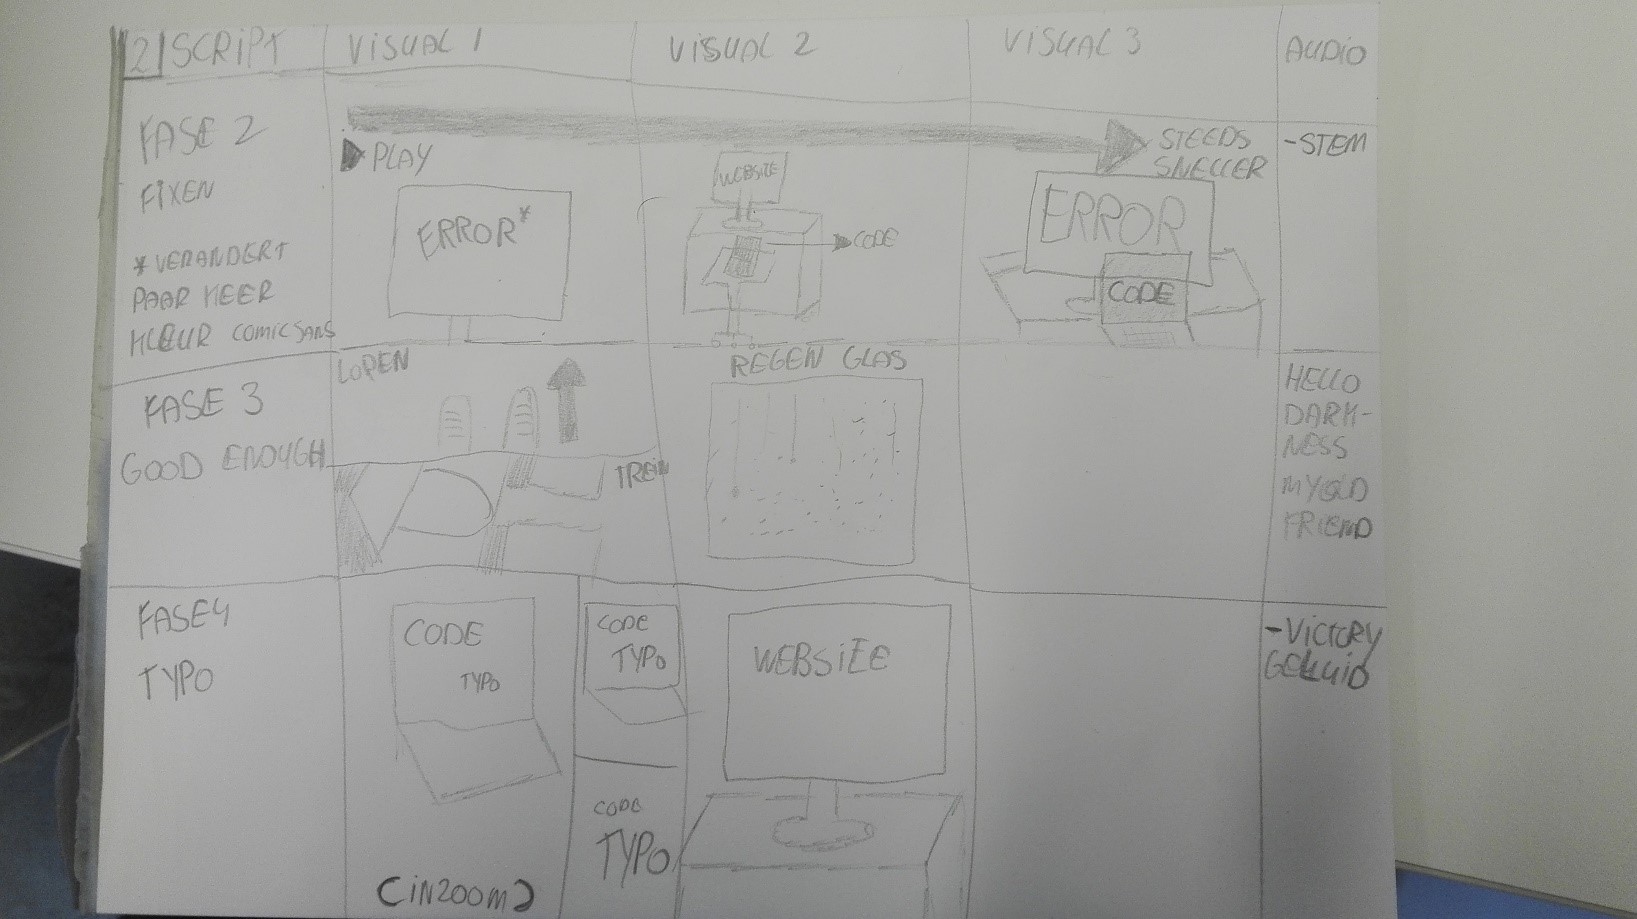 2 SCRIPT
VISUAL 1
VISUAL 2
VISUAL 3
AUDIO
FASE 2
FIXEN
*VERANDERT
PAAR KEER
KLEUR COMIC SANS
PLAY
ERROR*
WEBSITE
CODE
STEEDS
SNELLER
ERROR
CODE
-STEM
FASE 3
GOOD ENOUGH
LOPEN
TREIN
REGEN GLAS
HELLO
DARK-
NESS
MY OLD
FRIEND
FASE 4
TYPO
CODE
TYPO
(INZOOM)
CODE
TYPO
CODE
TYPO
WEBSITE
-VICTORY
GELUID